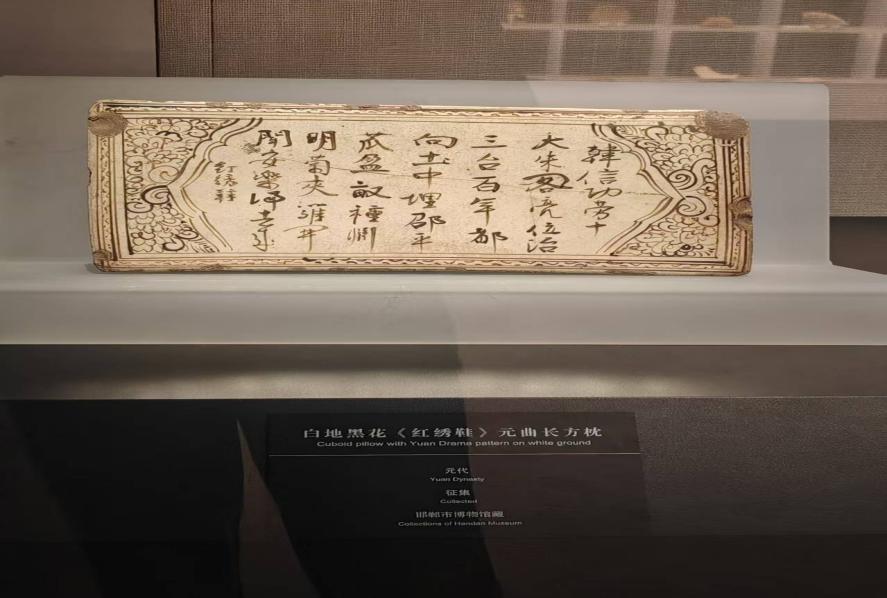 韓信功劳十
大朱阁亮位治
三台百年都
向土中埋邵平
瓜盈畝種渊
明菊夾籬开
闻安樂归去来
红绣鞋
白地黑花《红绣鞋》元曲长方枕
Cuboid pillow with Yuan Drama pattern on white ground
元代
Yuan Dynasty
征集
Collected
邯郸市博物馆藏
Collections of Handan Museum